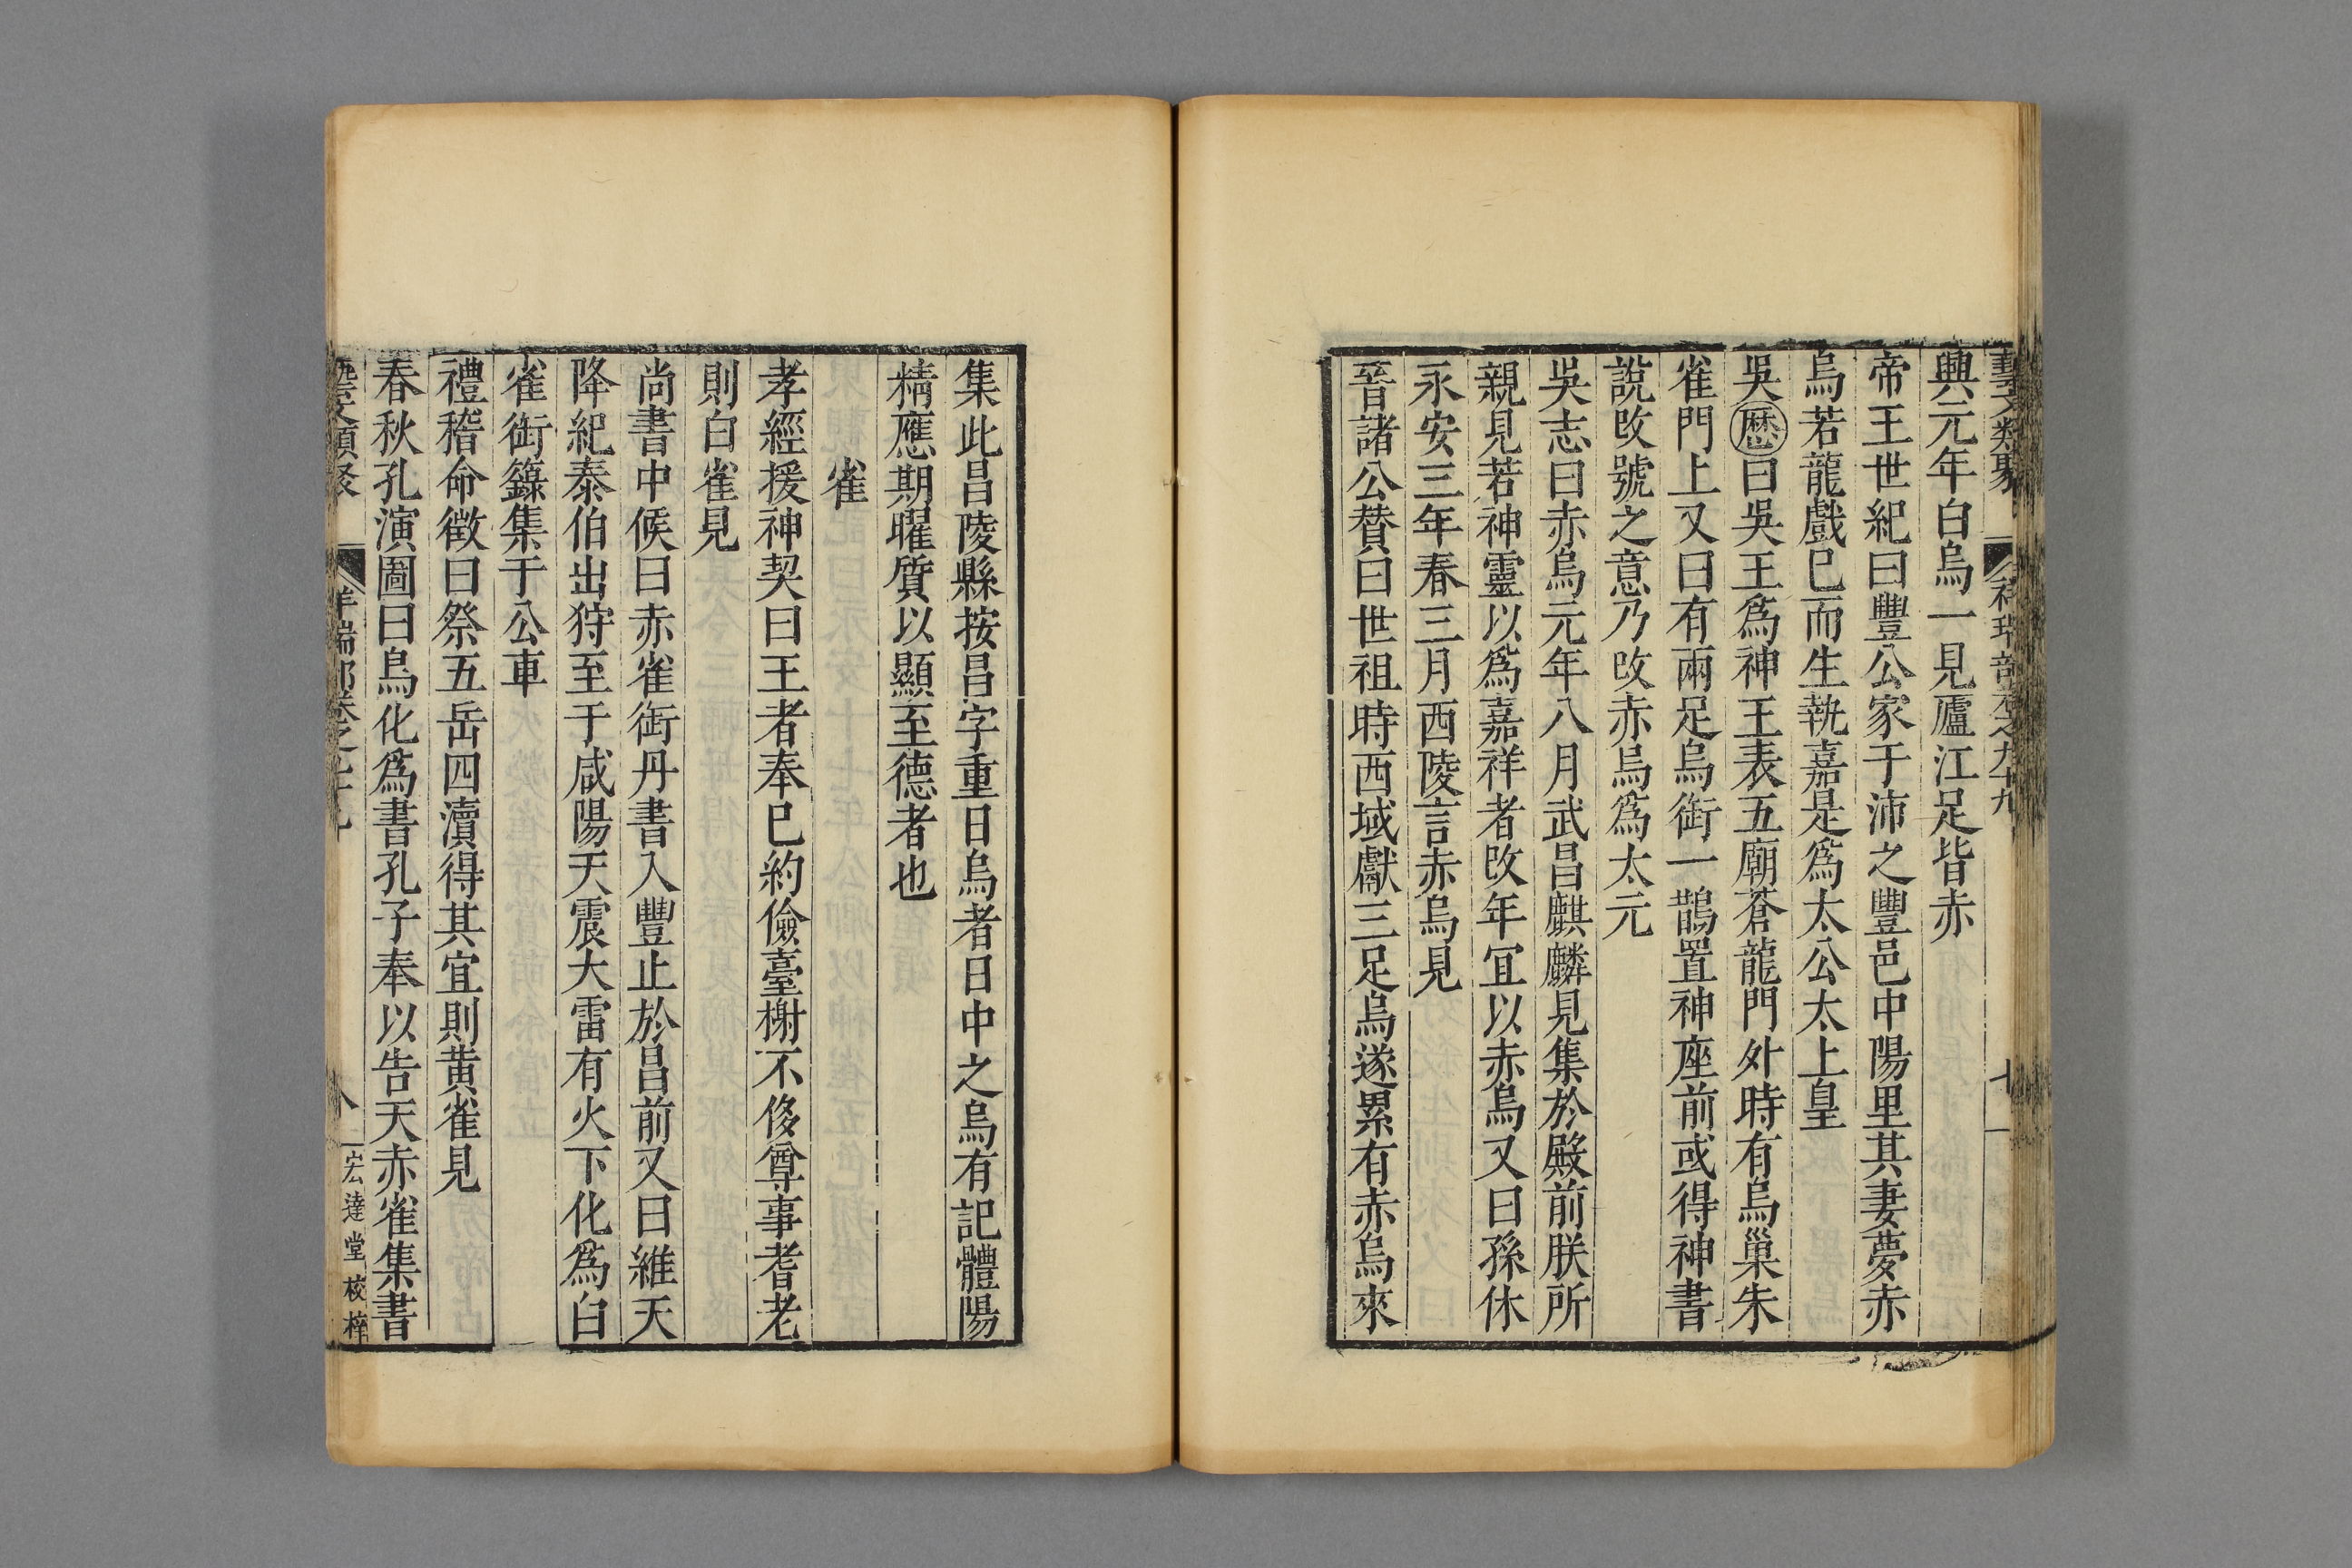 藝文類聚 祥瑞部卷之九十九 七
興元年白烏一見廬江足皆赤
帝王世紀曰豐公家于沛之豐邑中陽里其妻夢赤
烏若龍戲巳而生執嘉是為太公太上皇
吳歷曰吳王為神王表五廟蒼龍門外時有烏巢朱
雀門上又曰有兩足烏銜一鵲置神座前或得神書
說改號之意乃改赤烏為太元
吳志曰赤烏元年八月武昌麒麟見集於殿前朕所
親見若神靈以為嘉祥者改年宜以赤烏又曰孫休
永安三年春三月西陵言赤烏見
晉諸公贊曰世祖時西域獻三足烏遂累有赤烏來
集此昌陵縣按昌字重日烏者日中之烏有記體陽
精應期曜質以顯至德者也
雀
孝經援神契曰王者奉巳約儉臺榭不侈尊事耆老
則白雀見
尚書中候曰赤雀銜丹書入豐止於昌前又曰維天
降紀泰伯出狩至于咸陽天震大雷有火下化為白
雀銜籙集于公車
禮稽命徵曰祭五岳四瀆得其宜則黃雀見
春秋孔演圖曰鳥化為書孔子奉以告天赤雀集書
藝文類聚 祥瑞部卷之九十九 八 宏達堂校梓